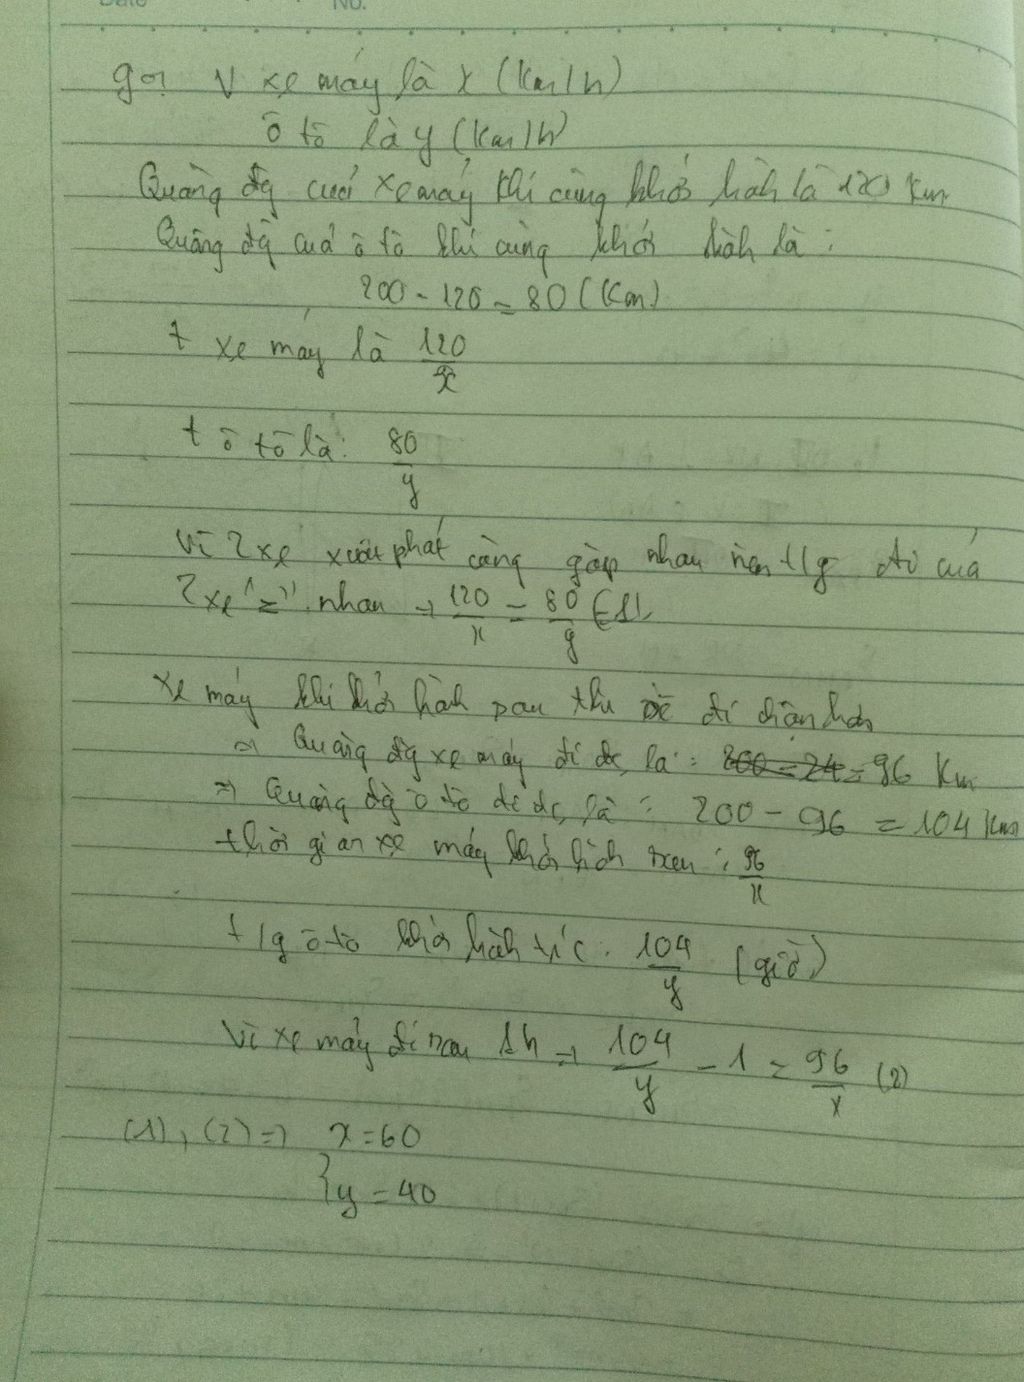 Date No.
gọi V xe máy là x (Km/h)
ô tô là y (Km/h)
Quãng đg của xe máy khi cùng khởi hành là 120 Km
Quãng đg của ô tô khi cùng khởi hành là :
200 - 120 = 80 (Km)
t xe máy là 120/x
t ô tô là: 80/y
Vì 2 xe xuất phát cùng gặp nhau nên t/g đi của
2 xe "=" nhau → 120/x = 80/y (1)
xe máy khi khởi hành sau thì đi chậm hơn
⇒ Quãng đg xe máy đi đc là : 200 - 24 = 96 Km
⇒ Quãng đg ô tô đi đc là : 200 - 96 = 104 Km
thời gian xe máy khởi : 96/x
t/g ô tô khởi hành : 104/y (giờ)
Vì xe máy đi sau 1h ⇒ 104/y - 1 = 96/x (2)
(1), (2) ⇒ x = 60
{ y = 40